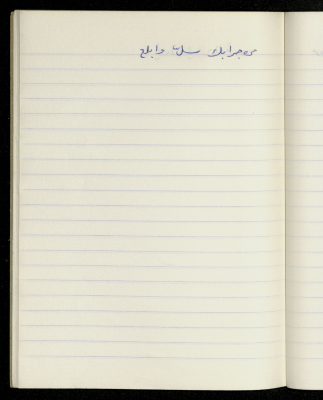 من جرابك سلب وابلع